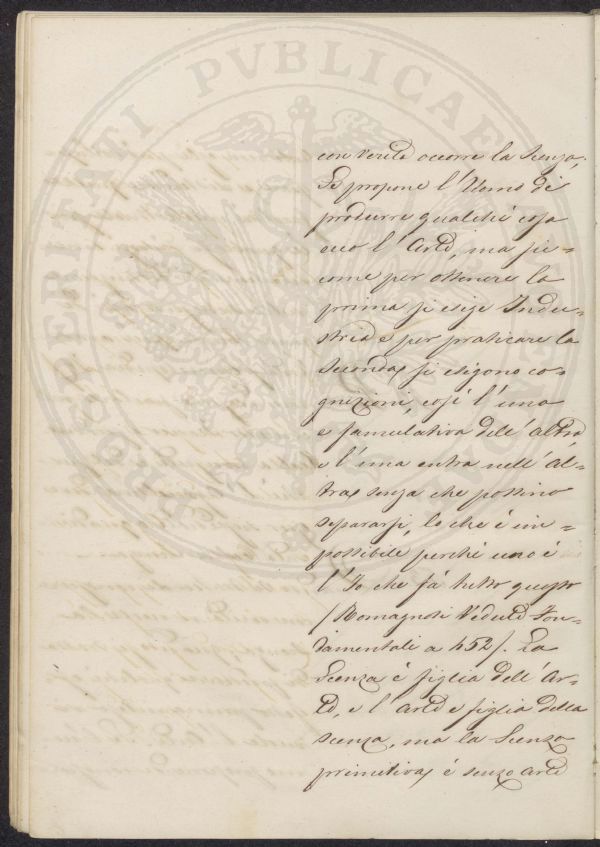 con verità occorre la Scienza.
Se propone l'Uomo di
produrre qualche cosa
ecco l'Arte, ma sic=
come per ottenere la
prima si esige Indu=
stria e per praticare la
seconda si esigono co=
gnizioni, così l'una
e famulativa dell'Altra,
e l'una entra nell'Al=
tra senza che possino
separarsi, lo che è im=
possibile perchè uno è
l'Io che fà tutto questo
/Romagnosi Vedute Fon=
damentali a 452/. La
Scenza è figlia dell'Ar=
te, e l'Arte e figlia della
scenza, ma la Scienza
primitiva è senza arte
PROSPERITATI PVBLICAE